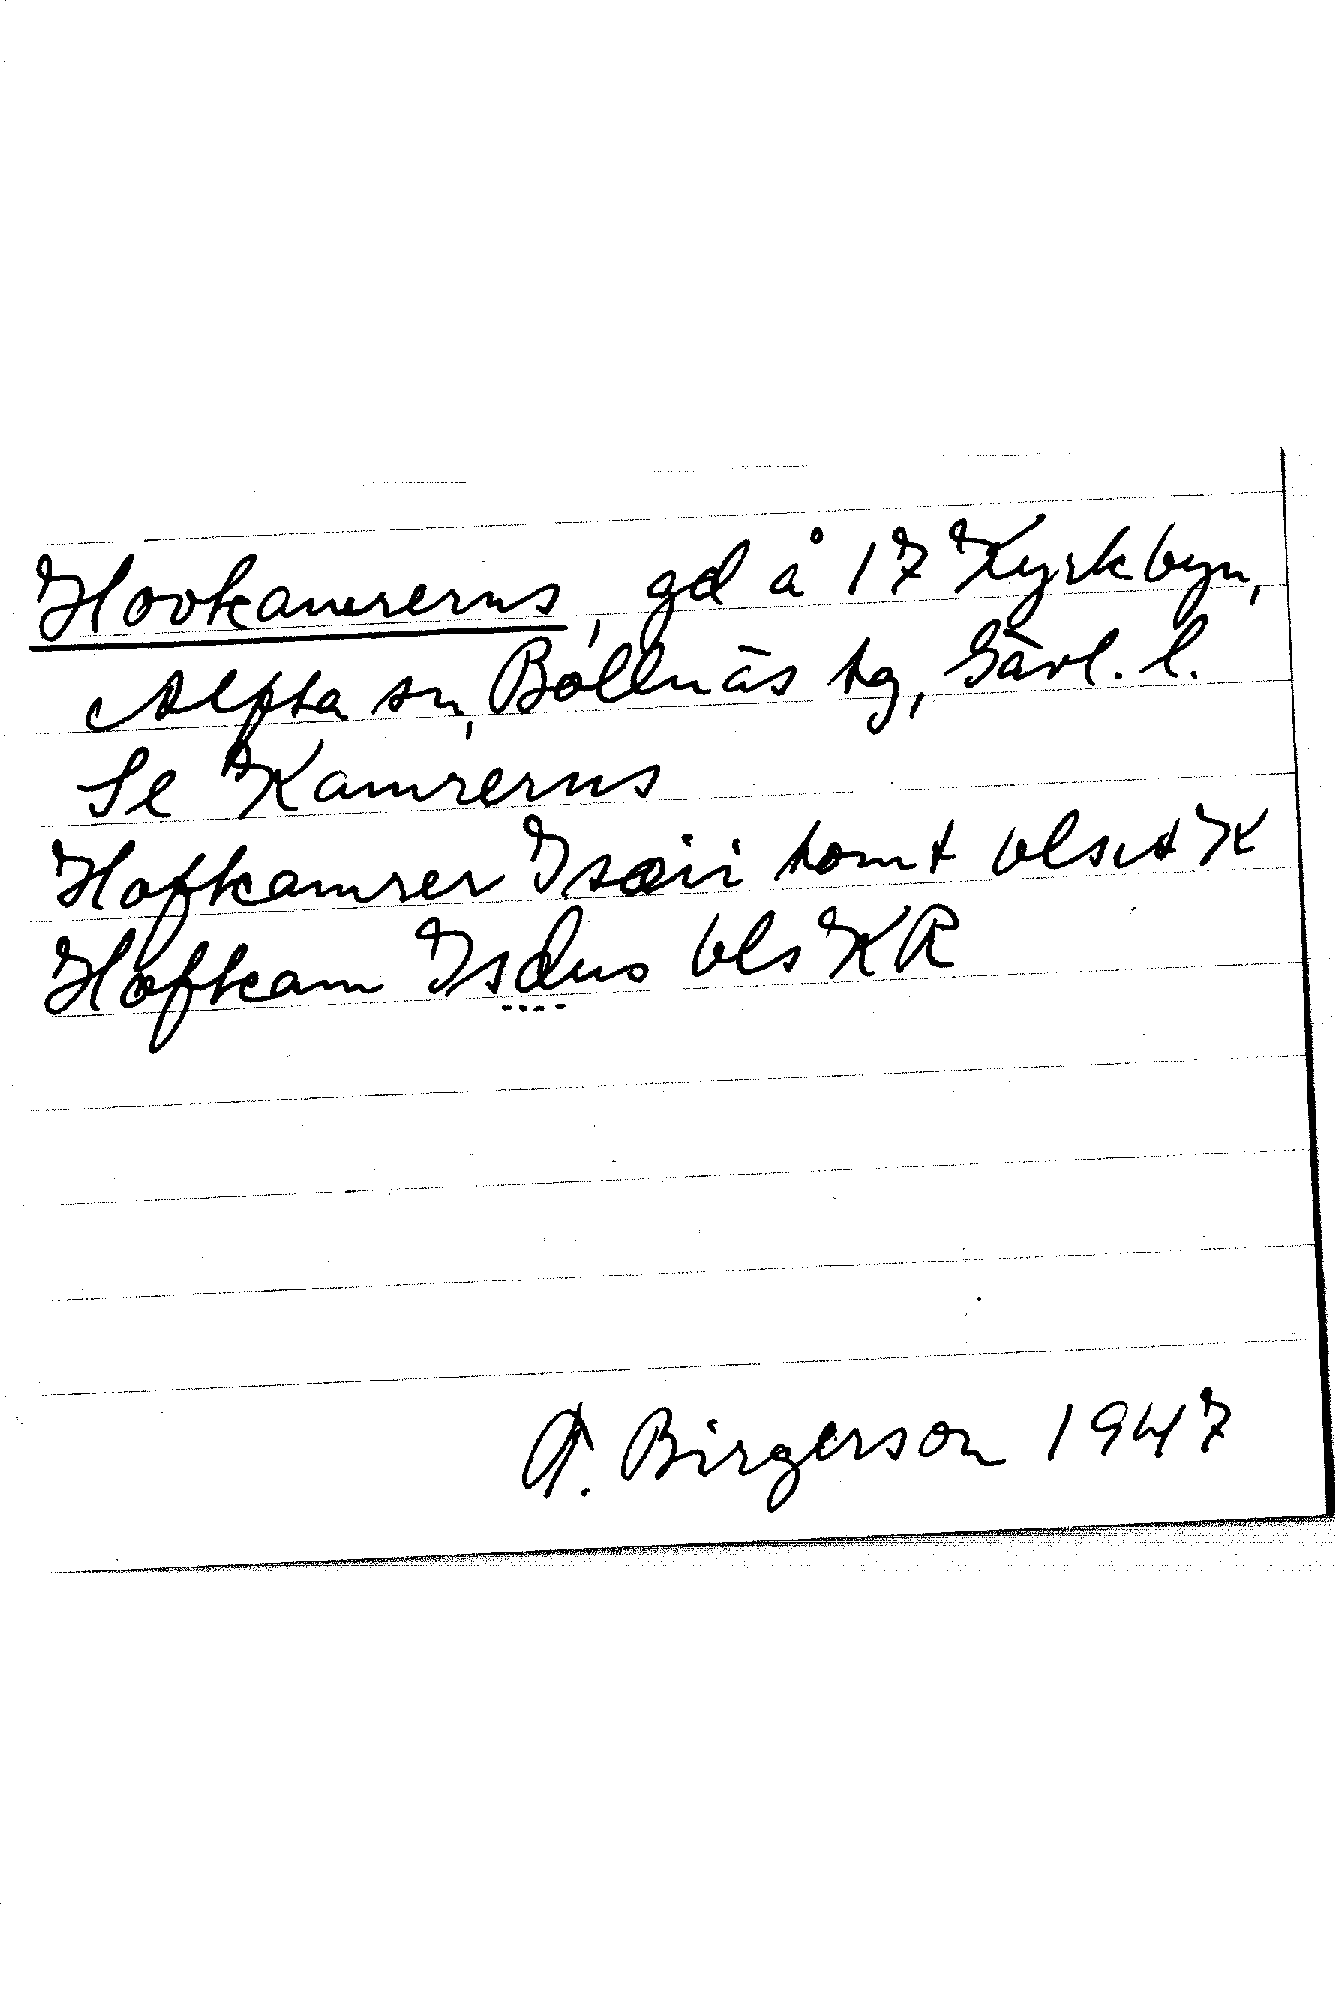 Hovkamrerns, gd å 17 Kyrkbyn,
Alfta sn, Bollnäs tg, Gävl. l.
Se Kamrerns
Hofkamrer Isæii tomt K
Hofkam KR
A. Birgerson 1947